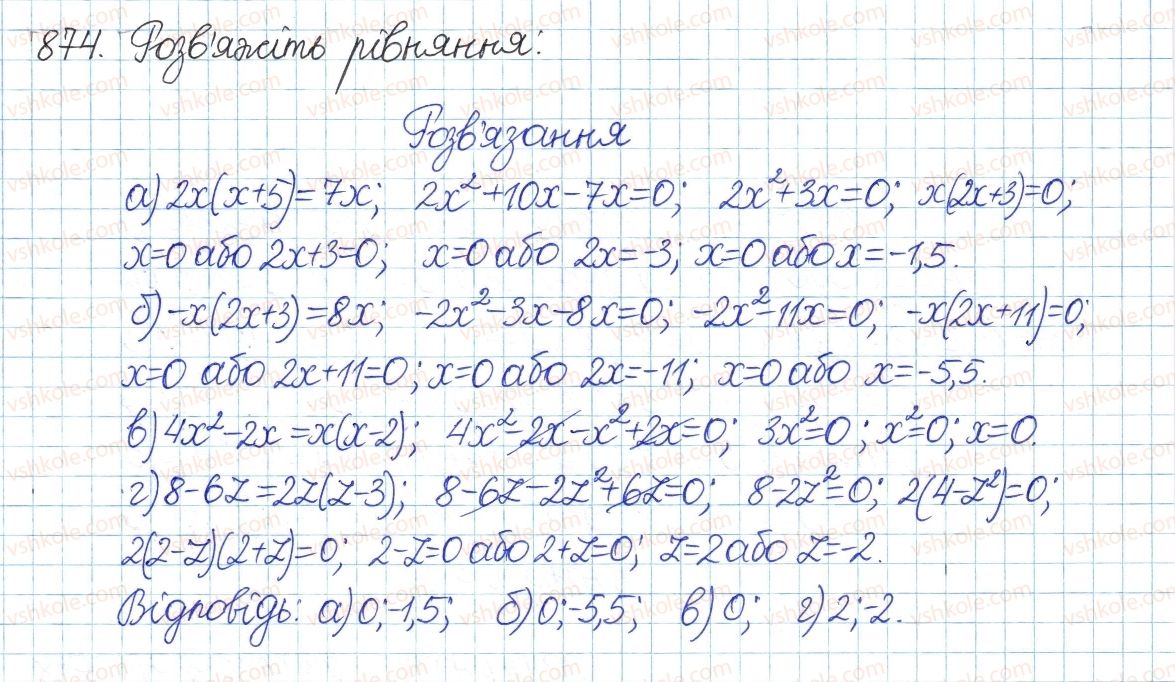 874. Розв'яжіть рівняння:
Розв'язання
а) 2x(x+5)=7x; 2x²+10x-7x=0; 2x²+3x=0; x(2x+3)=0;
x=0 або 2x+3=0; x=0 або 2x=-3; x=0 або x=-1,5.
б) -x(2x+3)=8x; -2x²-3x-8x=0; -2x²-11x=0; -x(2x+11)=0;
x=0 або 2x+11=0; x=0 або 2x=-11; x=0 або x=-5,5.
в) 4x²-2x=x(x-2); 4x²-2x-x²+2x=0; 3x²=0; x²=0; x=0.
г) 8-6z=2z(z-3); 8-6z-2z²+6z=0; 8-2z²=0; 2(4-z²)=0;
2(2-z)(2+z)=0; 2-z=0 або 2+z=0; z=2 або z=-2.
Відповідь: а) 0;-1,5; б) 0;-5,5; в) 0; г) 2;-2.